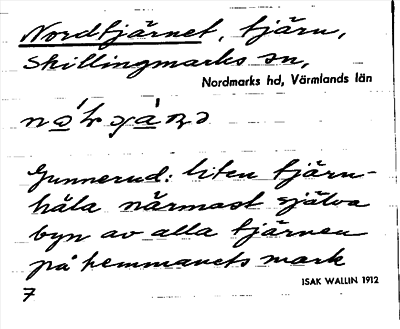 Nordtjärnet, tjärn,
Skillingmarks sn,
Nordmarks hd, Värmlands län
Gunnerud: liten tjärn-
håla närmast själva
byn av alla tjärnen
på hemmanets mark
ISAK WALLIN 1912
7